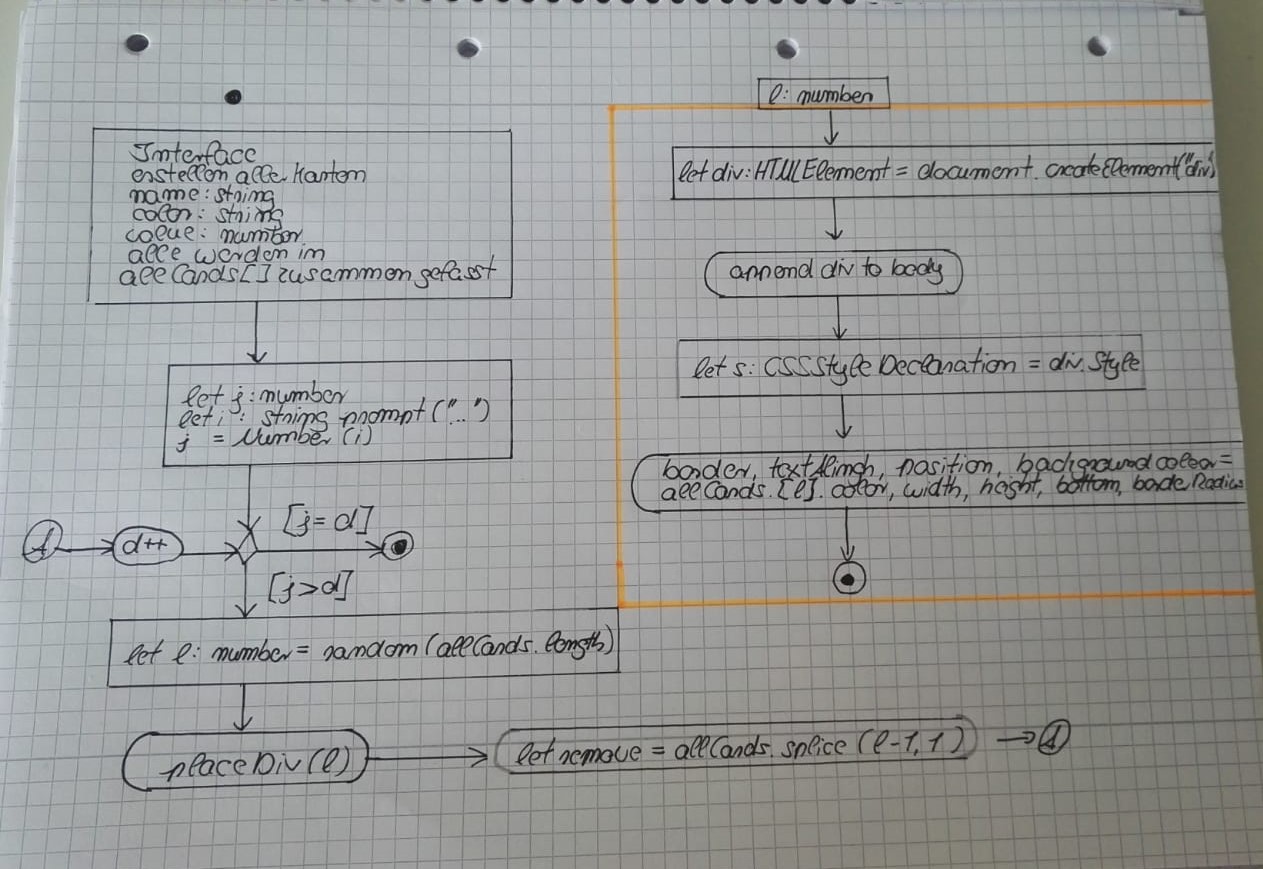 Interface
erstellen alle Karten
name: string
color: string
value: number
alle werden in
allCards[] zusammengefasst
let j: number
let i: string prompt("...")
j = Number(i)
[j=d]
1
d++
[j>d]
let l: number = random(allCards.length)
placeDiv(l)
let remove = allCards.splice(l-1,1)
1
l: number
let div: HTMLElement = document.createElement("div")
append div to body
let s: CSSStyleDeclaration = div.style
border, textAlign, position, backgroundcolor =
allCards.[l].color, width, height, bottom, borderRadius